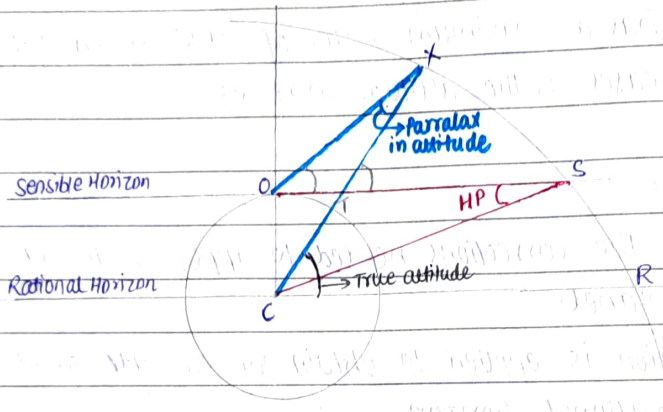 X
→Parralax
in altitude
S
Sensible Horizon
O
HP
T
Rational Horizon
→True altitude
R
C